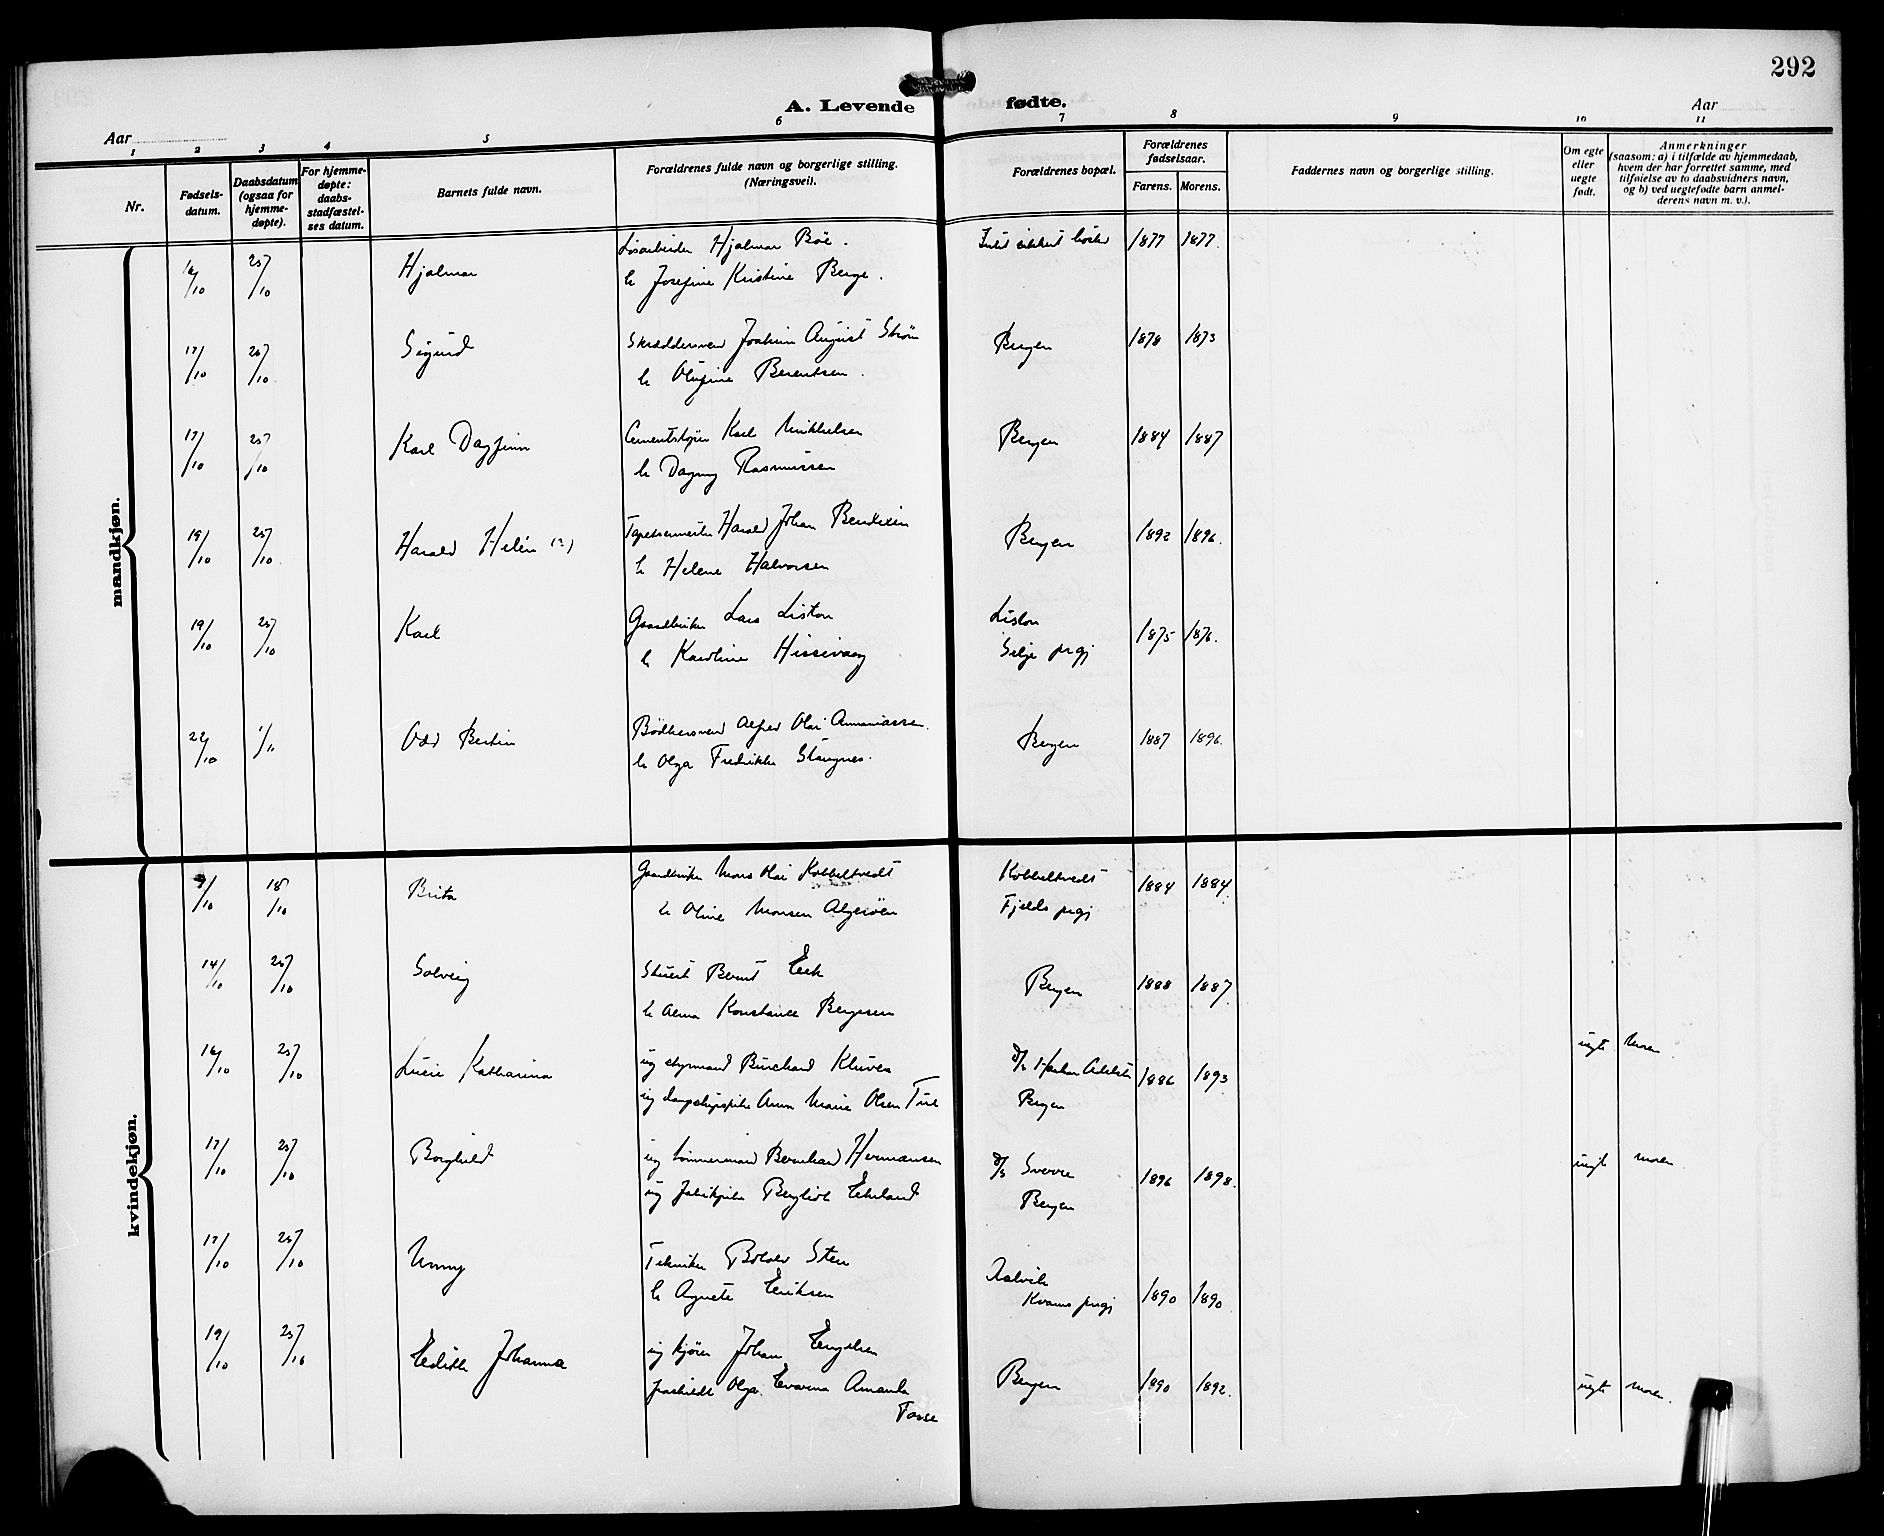 292
A. Levende fødte.
Aar
Aar
1 2 3 4 5 6 7 8 9 10 11
Nr.
Fødsels-
datum.
Daabsdatum
(ogsaa for
hjemme-
døpte).
For hjemme-
døpte:
daabs-
stadfæstel-
ses datum.
Barnets fulde navn.
Forældrenes fulde navn og borgerlige stilling.
(Næringsvei).
Forældrenes bopæl.
Forældrenes
fødselsaar.
Farens. Morens.
Faddernes navn og borgerlige stilling.
Om egte
eller
uegte
født.
Anmerkninger
(saasom: a) i tilfælde av hjemmedaab,
hvem der har forrettet samme, med
tilføielse av to daabsvidners navn,
og b) ved uegtefødte barn anmel-
derens navn m. v.).
mandkjøn.
16/10 25/10 Hjalmar Løsarbeider Hjalmar Böe. 1877 1877.
h Josefine Kristine Berge.
17/10 25/10 Sigurd Skræddersvend Joakim August Ström Bergen 1878 1873
h Olufine Berentsen.
17/10 25/10 Karl Dagfinn Karl Mikkelsen Bergen 1884 1887
h Dagny Rasmussen
19/10 25/10 Harald Helén (?) Tapetsermester Harald Johan Bendixen Bergen 1892 1896.
h Helene Halvorsen
19/10 25/10 Karl Gaardbruker Lars Liston Liston 1875 1876.
h Karoline Hissevaag Selje prgj
22/10 1/11 Odd Bertin Bödkersvend Alfred Olai Annaniassen. Bergen 1887 1896.
h Olga Fredrikke Stangnes.
kvindekjøn.
9/10 18/10 Brita Gaardbruker Mons Olai Kobbeltvedt Kobbeltvedt 1884 1884.
h Oline Monsen Algeröen Fjelds prgj
14/10 25/10 Solveig Stuert Bernt Eek Bergen 1888 1887.
h Alma Konstance Bergesen
16/10 25/10 Lucie Katharina ug styrmand Burchard Kluver 1886 1893 uegte Moren.
ug Anna Marie Olsen Bergen
17/10 25/10 Borghild ug tömmermand Bernhard Hermansen D/S Sverre 1896 1898. uegte Moren.
ug Bergliot Ekeland Bergen
17/10 25/10 Unny Tekniker Sten Aalvik 1890 1890.
h Agnete Eriksen Kvams prgj
19/10 25/10 Edith Johanna ug kjörer Johan Engelsen Bergen 1890 1892. uegte Moren.
fraskildt Olga Evarena Amanda